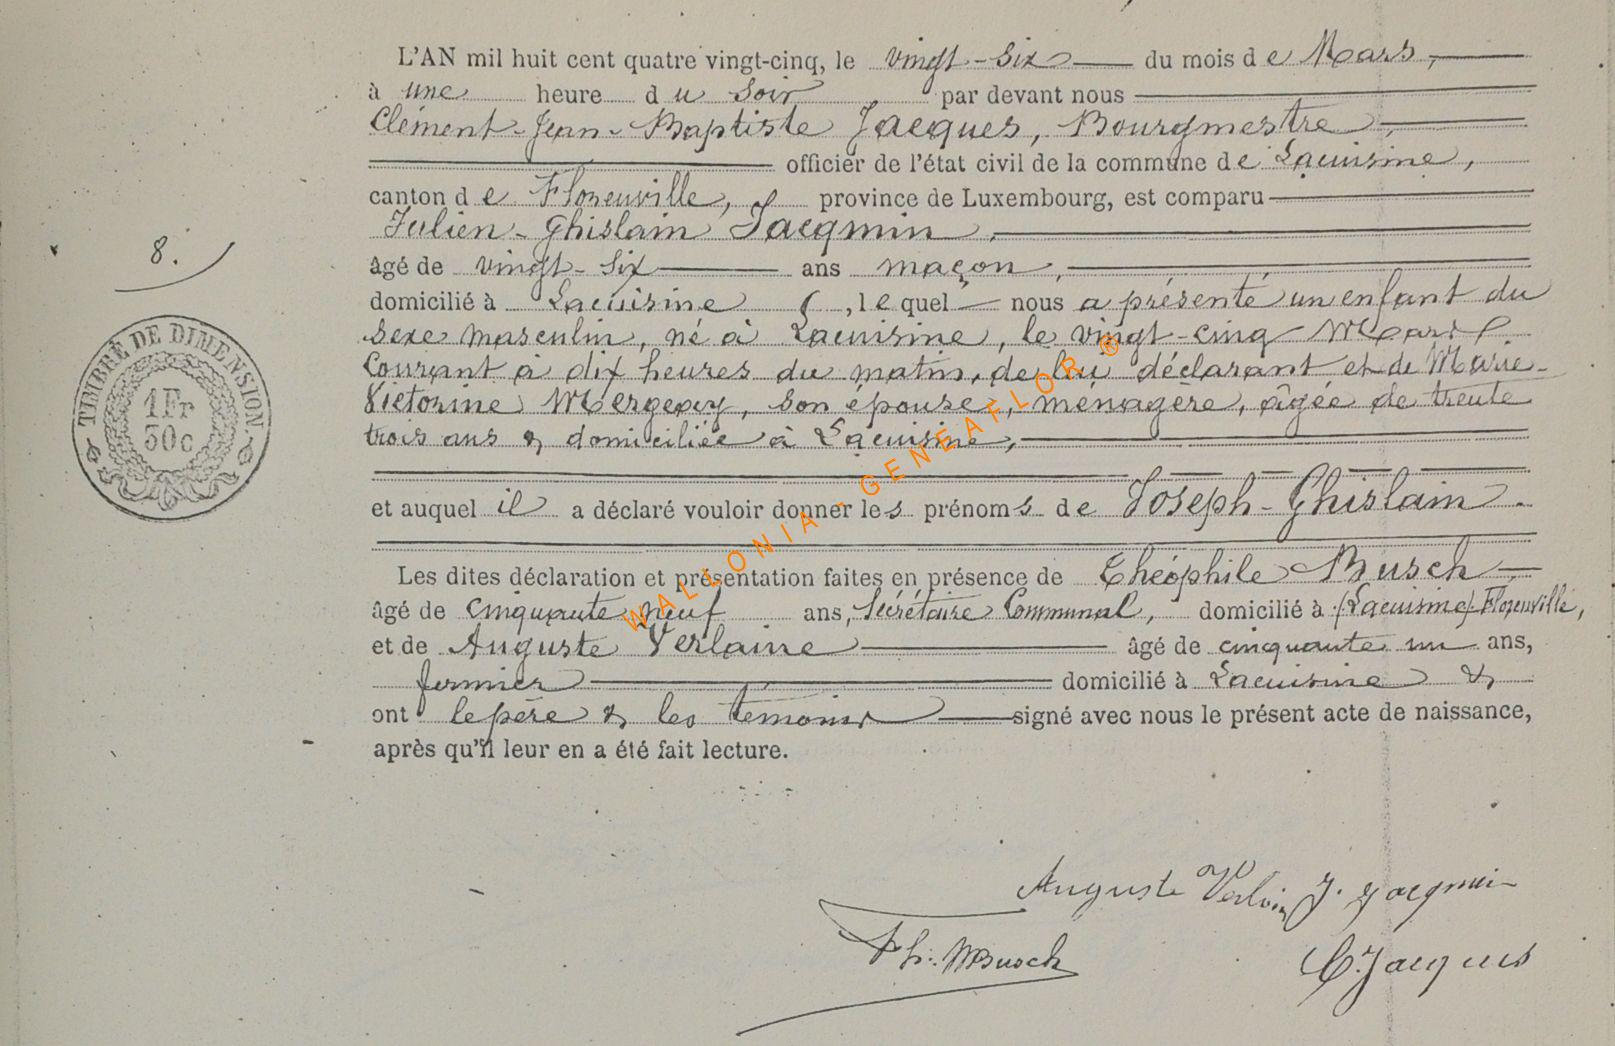 L'AN mil huit cent quatre vingt-cinq, le vingt-six du mois de Mars,
à une heure du soir par devant nous
Clément-Jean-Baptiste Jacques, Bourgmestre,
officier de l'état civil de la commune de Lacuisine,
canton de Florenville, province de Luxembourg, est comparu
Julien-Ghislain Jacqmin,
âgé de vingt-six ans maçon,
domicilié à Lacuisine, lequel nous a présenté un enfant du
sexe masculin, né à Lacuisine, le vingt-cinq Mars
Courant à dix heures du matin, de lui déclarant et de Marie-
Victorine Mergeay, son épouse, ménagère, âgée de trente
trois ans & domiciliée à Lacuisine,
et auquel il a déclaré vouloir donner les prénoms de Joseph-Ghislain.
Les dites déclaration et présentation faites en présence de Théophile Busch
âgé de cinquante neuf ans, Secrétaire Communal, domicilié à (Lacuisine) Florenville,
et de Auguste Verlaine âgé de cinquante un ans,
fermier domicilié à Lacuisine &
ont le père & les témoins signé avec nous le présent acte de naissance,
après qu'il leur en a été fait lecture.
8.
TIMBRE DE DIMENSION.
1Fr
30c
WALLONIA - GENEAFLOR ®
Auguste Verlain J. Jacqmin
Th: Busch
C. Jacques